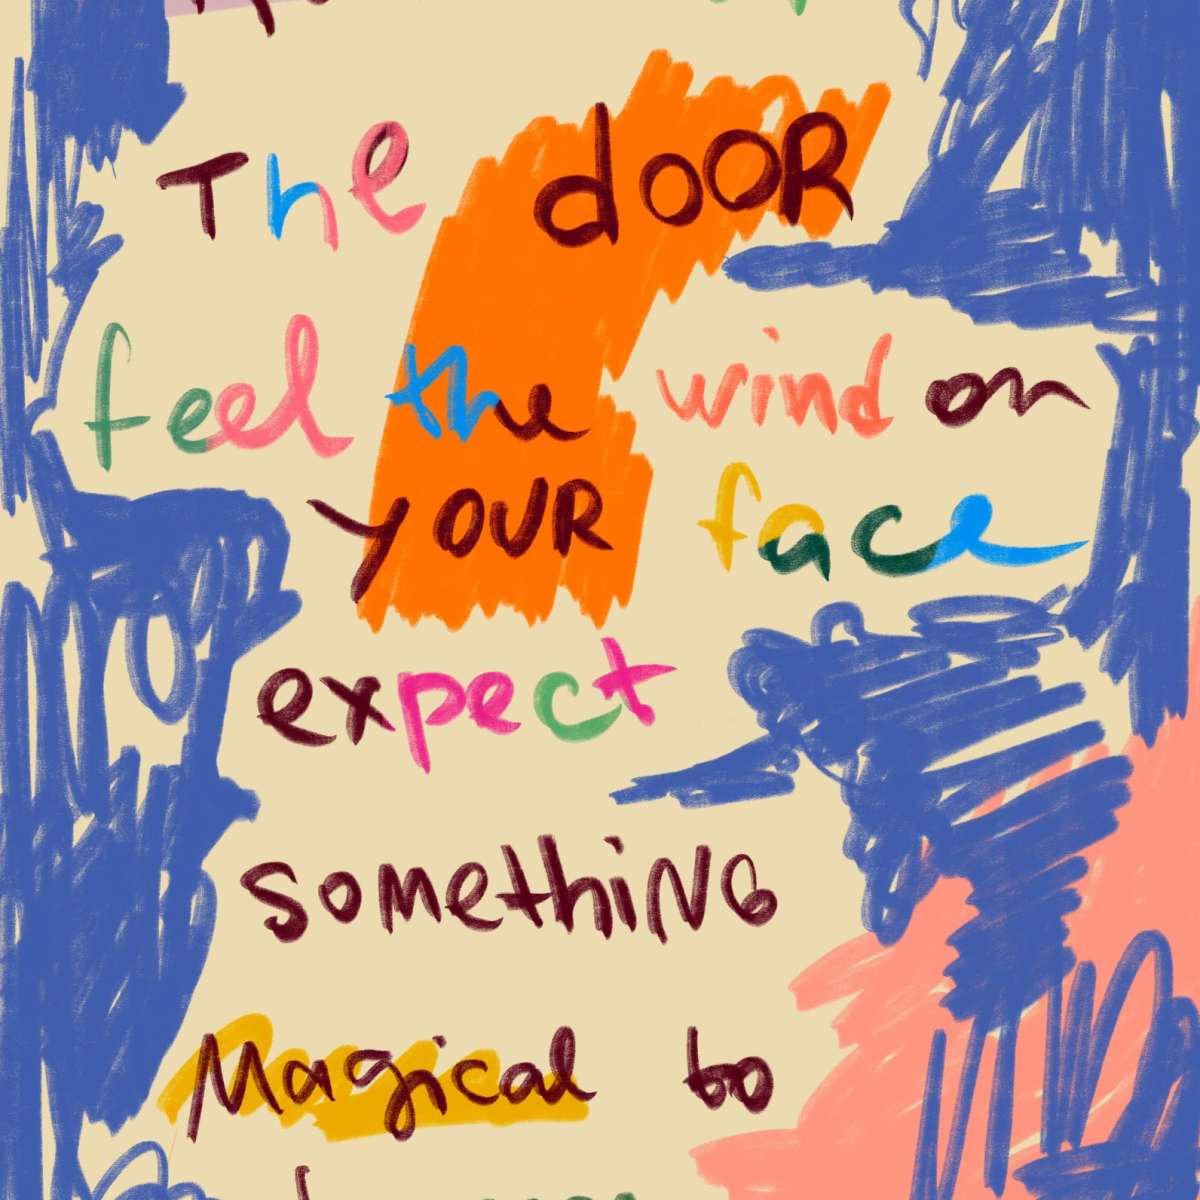 The dooR
feel the wind on
YOUR face
expect
somethiNG
Magical to